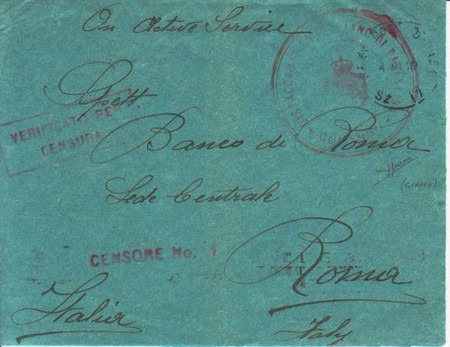 On Active Service
Spett.
VERIFICATO PER
CENSURA
Banco di Roma
Sede Centrale
CENSORE No. 1
Roma
Italia
Italy